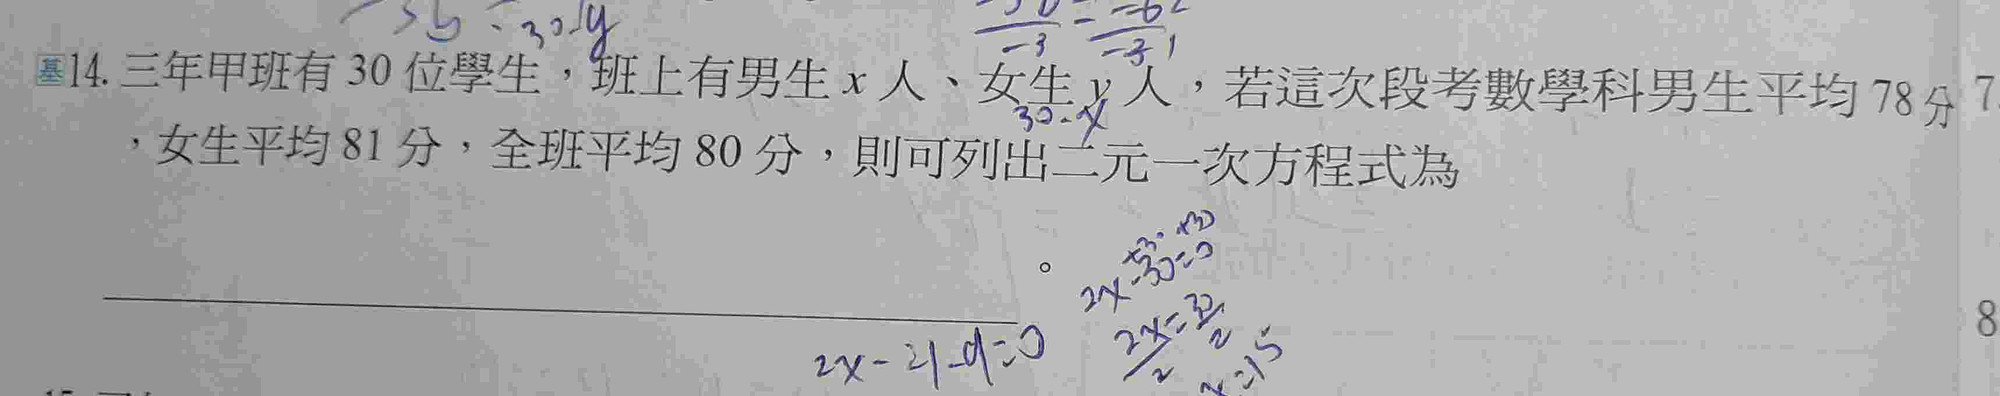 3b = 30-y
基14. 三年甲班有 30 位學生，班上有男生 x 人、女生 y 人，若這次段考數學科男生平均 78 分 7
30-x
，女生平均 81 分，全班平均 80 分，則可列出二元一次方程式為
。
2x-30=0
2x=30
2 2
x=15
8